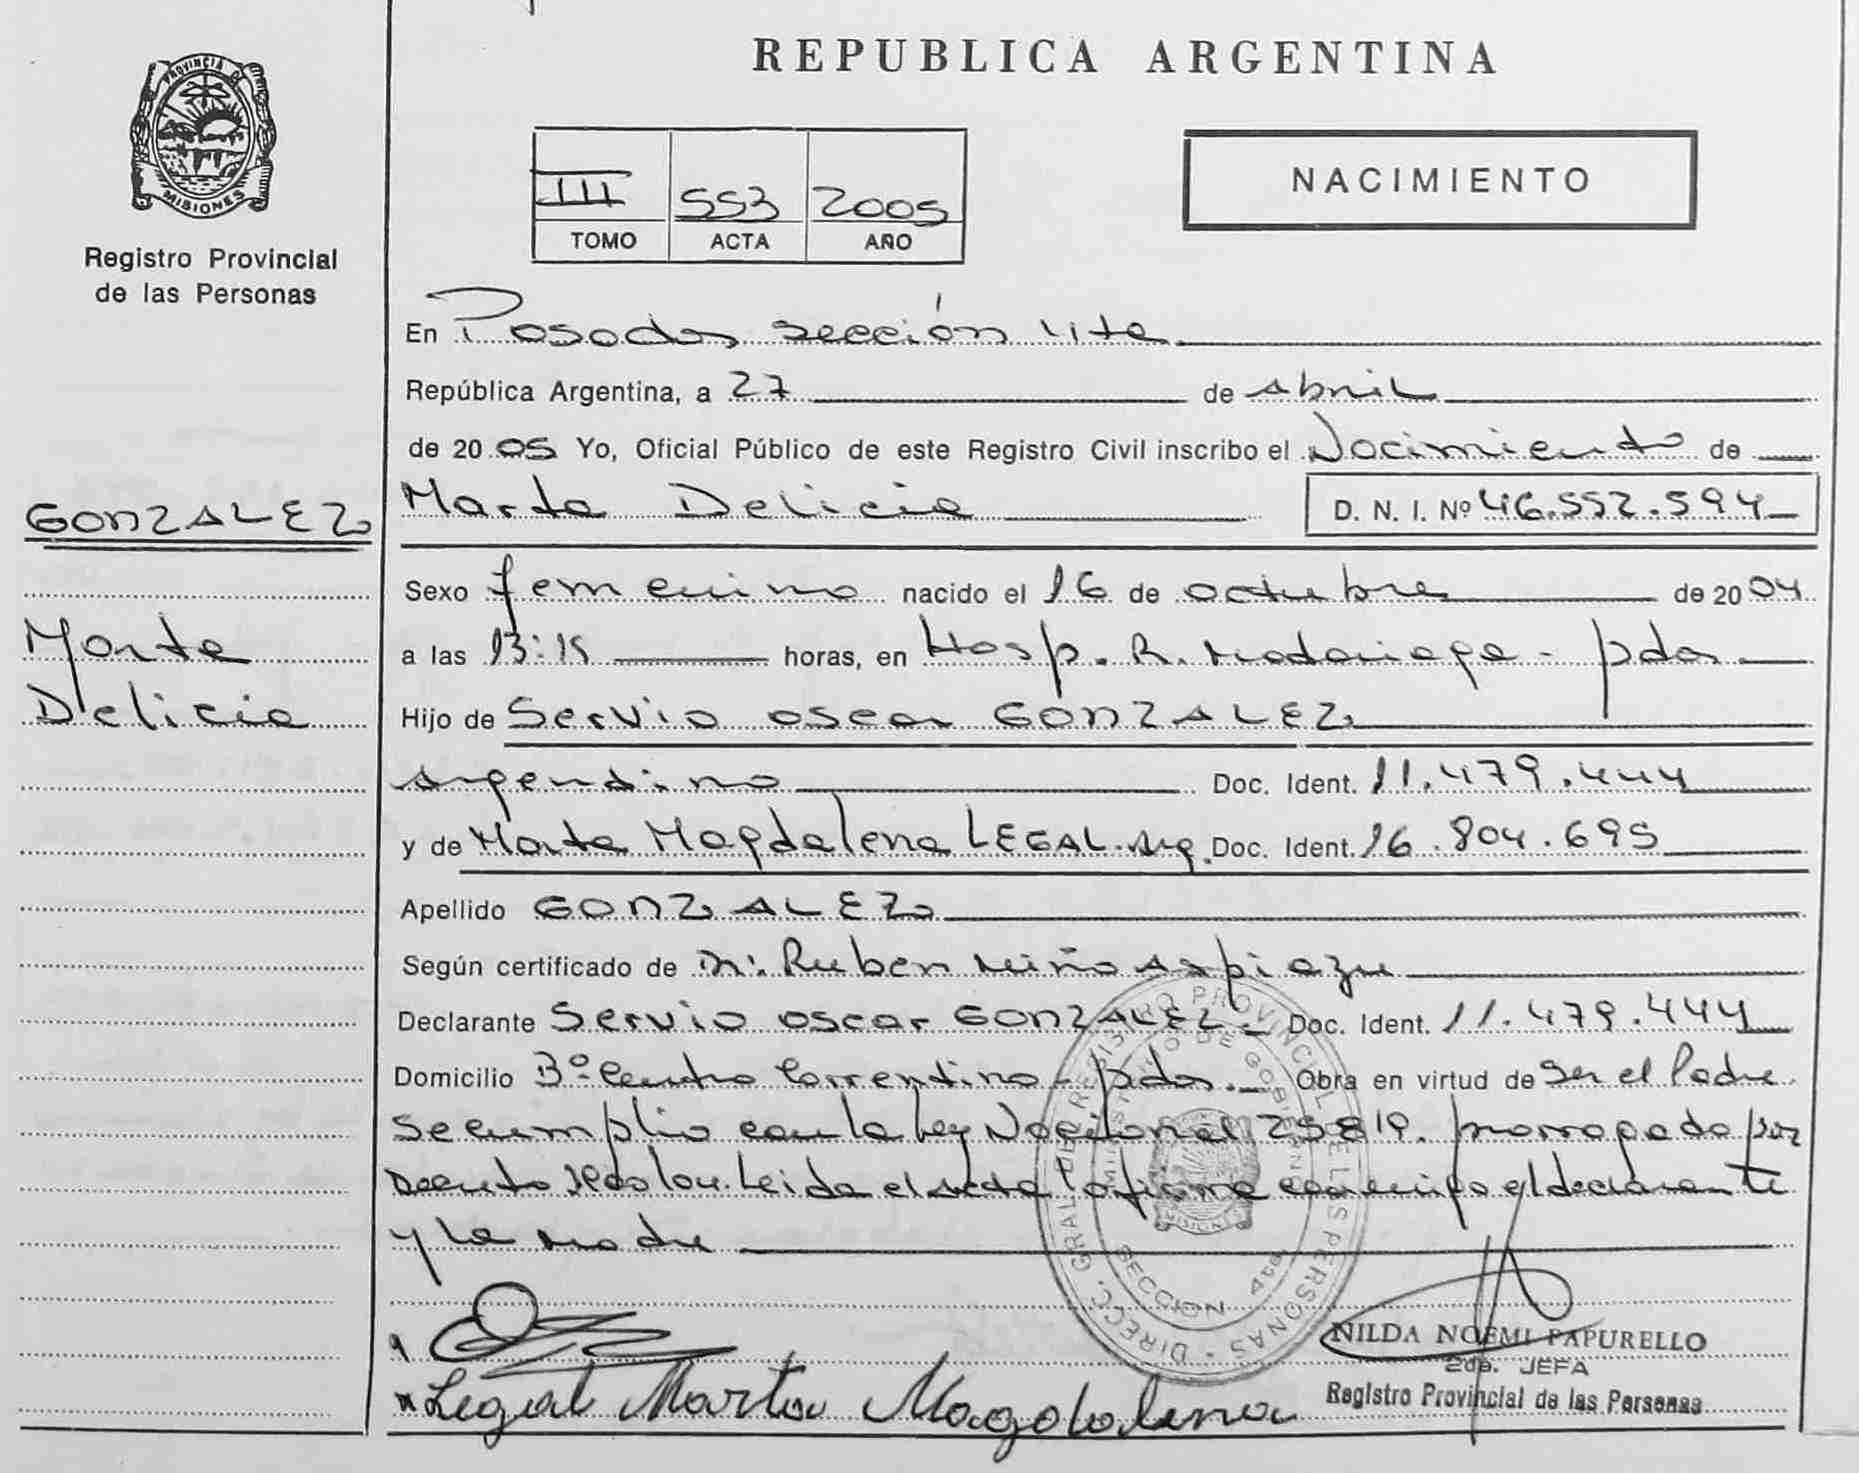 PROVINCIA DE
MISIONES
Registro Provincial
de las Personas
GONZALEZ
Marta
Delicia
REPUBLICA ARGENTINA
III 553 2005
TOMO ACTA AÑO
NACIMIENTO
En Posadas sección 4ta
República Argentina, a 27 de abril
de 2005 Yo, Oficial Público de este Registro Civil inscribo el Nacimiento de
Marta Delicia D. N. I. Nº 46.552.594
Sexo femenino nacido el 16 de octubre de 2004
a las 13:15 horas, en Hosp. R. Madariaga - pdas
Hijo de Servio oscar GONZALEZ
argentino Doc. Ident. 11.479.444
y de Marta Magdalena LEGAL. arg. Doc. Ident. 16.804.695
Apellido GONZALEZ
Según certificado de Dr. Ruben Miño
Declarante Servio oscar GONZALEZ - Doc. Ident. 11.479.444
Domicilio Bº Centro Correntino - pdas. Obra en virtud de Ser el Padre
Se cumplio con la Ley Nacional 25819. prorrogado por
Decreto Leida el acta firma conmigo el declarante
y la madre
DIRECC. GRAL. DE REGISTRO PROVINCIAL DE LAS PERSONAS
MINISTERIO DE GOBIERNO
MISIONES
SECCION 4ta
NILDA NOEMI PAPURELLO
2da. JEFA
Legal Marta Magdalena
Registro Provincial de las Personas